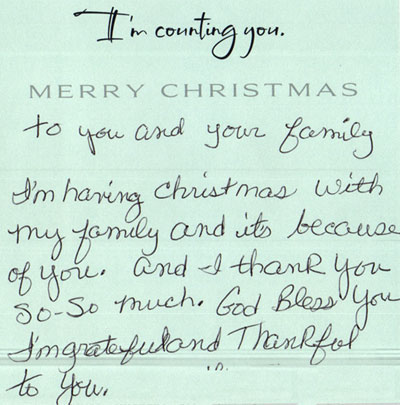 I'm counting you.
MERRY CHRISTMAS
to you and your family
I'm having Christmas with
my family and its because
of you. And I thank you
so-so much. God Bless You
I'm grateful and Thankful
to You.